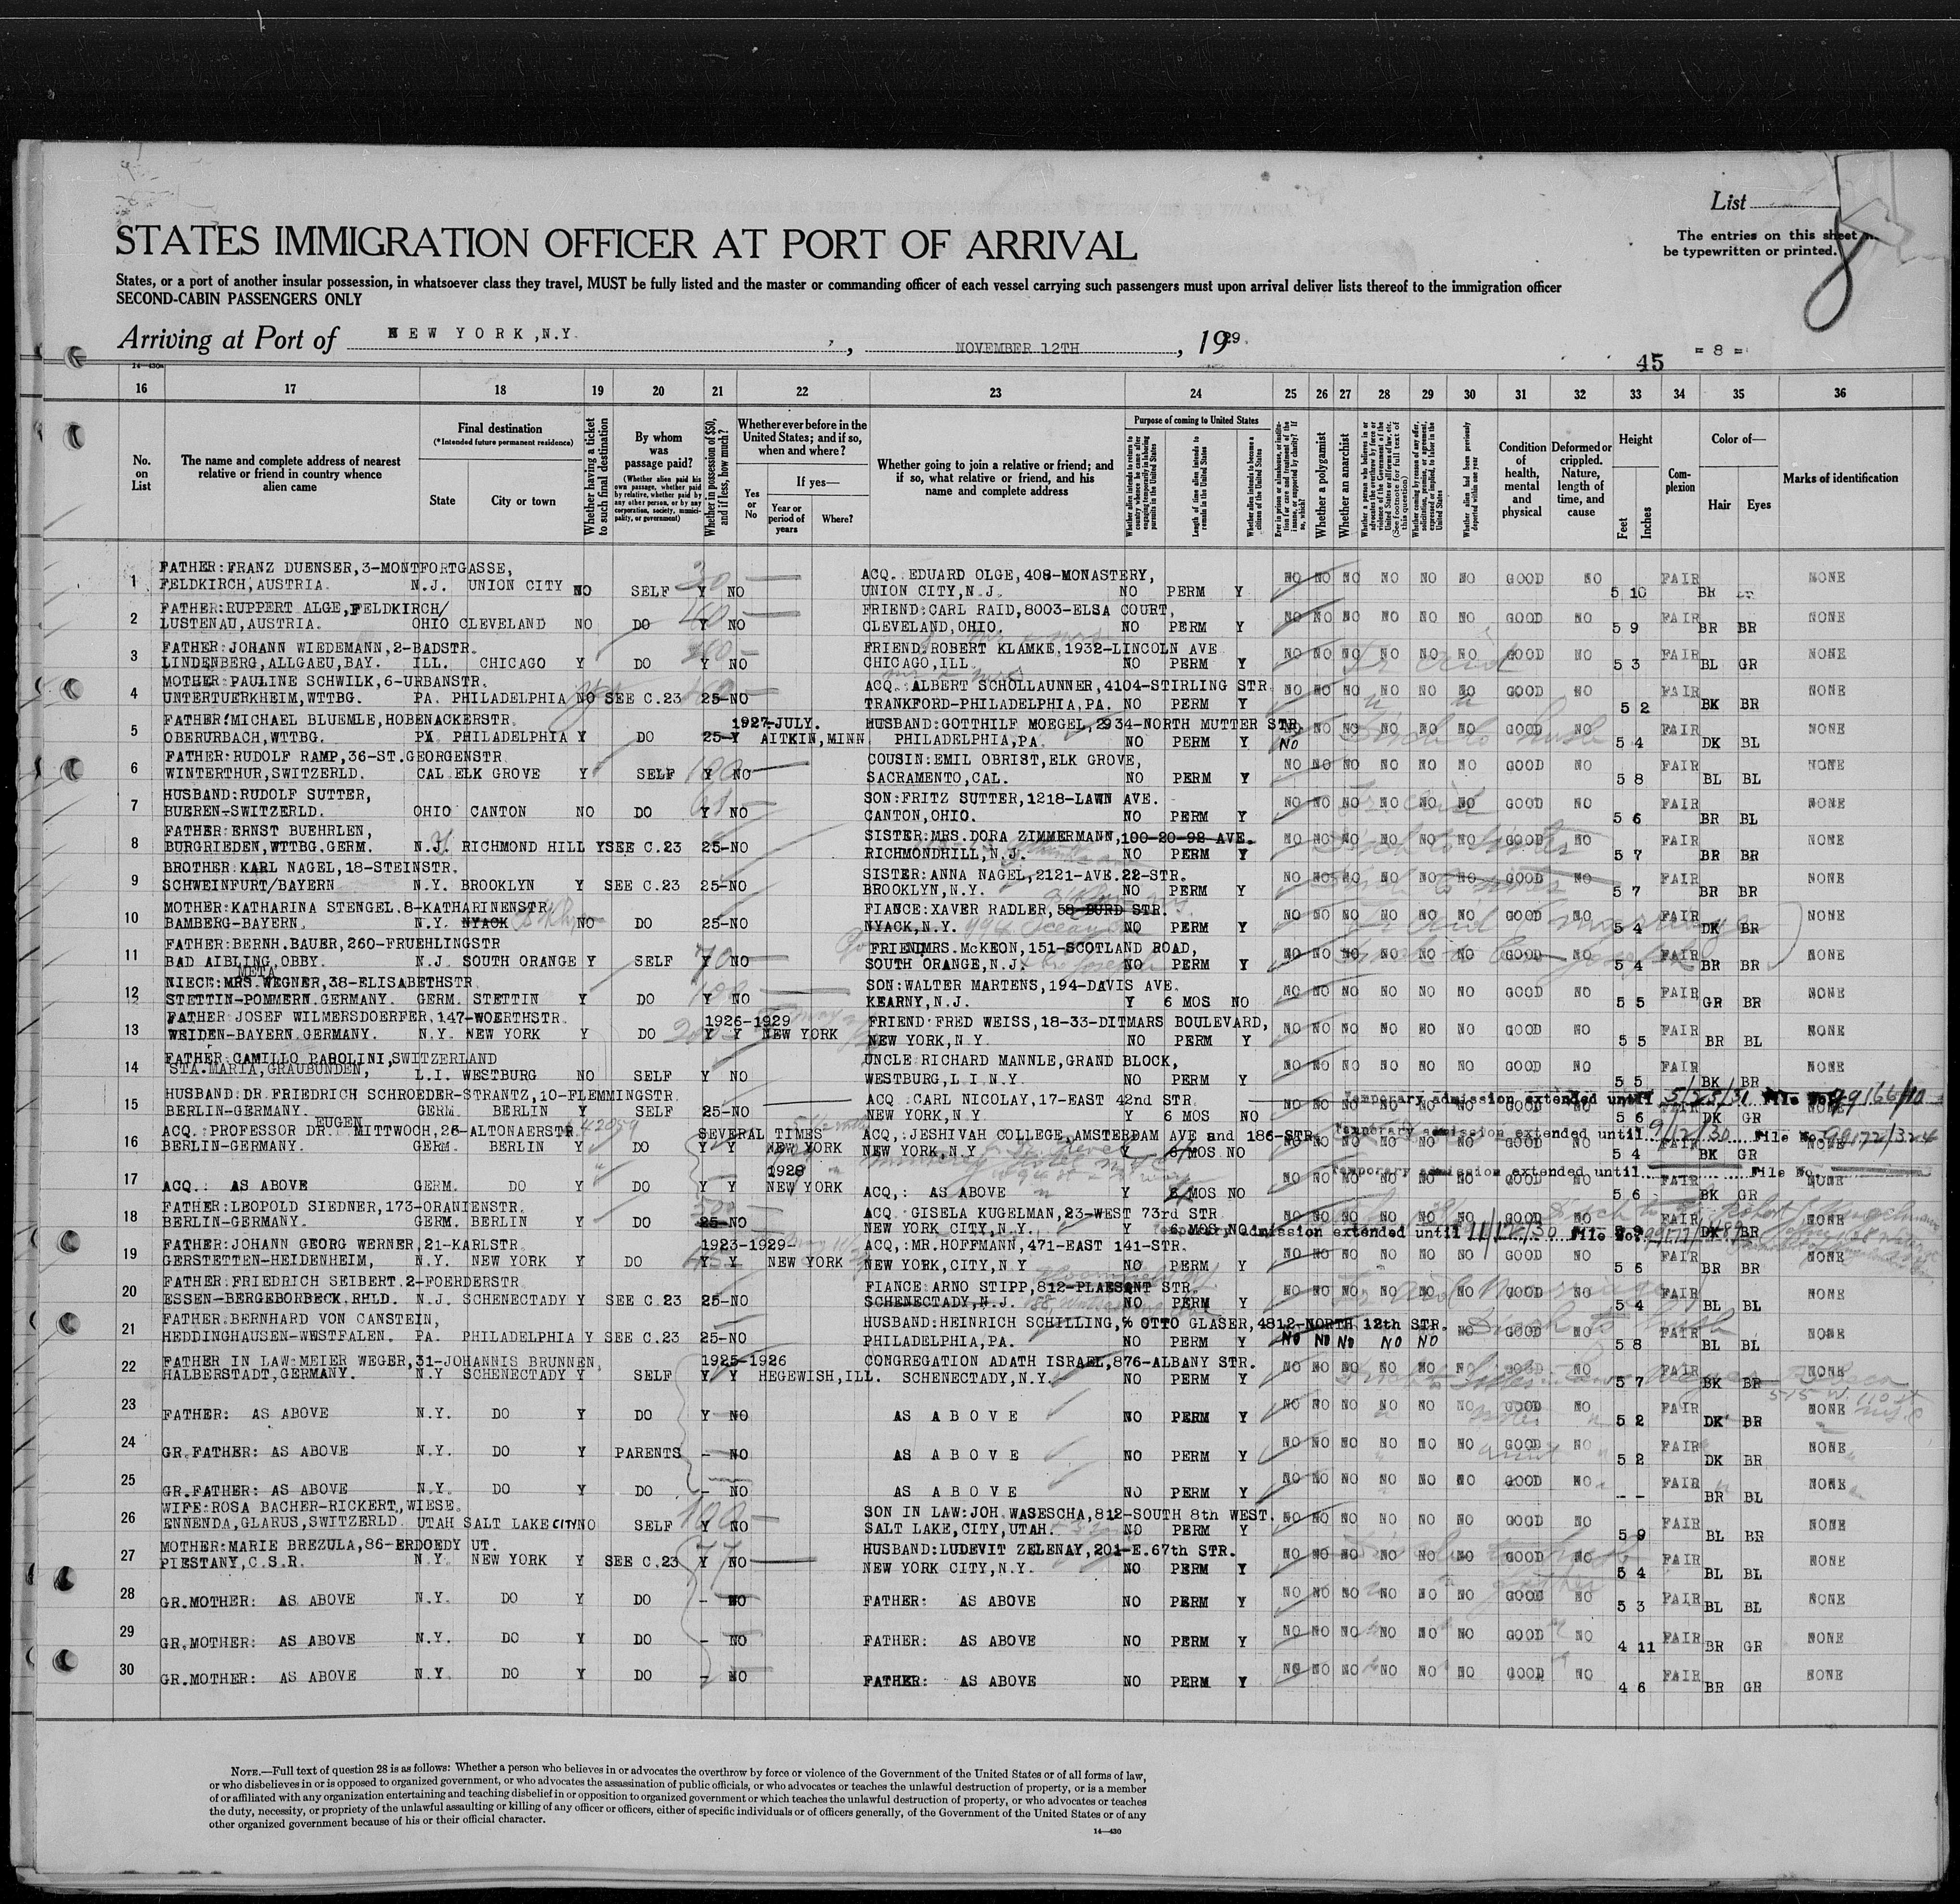 List
The entries on this sheet
be typewritten or printed.
STATES IMMIGRATION OFFICER AT PORT OF ARRIVAL
States, or a port of another insular possession, in whatsoever class they travel, MUST be fully listed and the master or commanding officer of each vessel carrying such passengers must upon arrival deliver lists thereof to the immigration officer
SECOND-CABIN PASSENGERS ONLY
Arriving at Port of NEW YORK, N.Y. , NOVEMBER 12TH , 1929.
45 = 8 =
16 17 18 19 20 21 22 23 24 25 26 27 28 29 30 31 32 33 34 35 36
No. on List
The name and complete address of nearest relative or friend in country whence alien came
Final destination
(*Intended future permanent residence)
State City or town
Whether having a ticket to such final destination
By whom was passage paid?
(Whether alien paid his own passage, whether paid by relative, whether paid by any other person, or by any corporation, society, municipality, or government)
Whether in possession of $50, and if less, how much?
Whether ever before in the United States; and if so, when and where?
Yes or No
If yes—
Year or period of years
Where?
Whether going to join a relative or friend; and if so, what relative or friend, and his name and complete address
Purpose of coming to United States
Whether a polygamist
Whether an anarchist
Condition of health, mental and physical
Deformed or crippled. Nature, length of time, and cause
Height
Feet Inches
Complexion
Color of—
Hair Eyes
Marks of identification
1 FATHER:FRANZ DUENSER,3-MONTFORTGASSE, ACQ. EDUARD OLGE,408-MONASTERY,
FELDKIRCH,AUSTRIA. N.J. UNION CITY NO SELF Y NO UNION CITY,N.J. NO PERM Y NO NO NO NO NO NO GOOD NO 5 10 FAIR BR NONE
2 FATHER:RUPPERT ALGE,FELDKIRCH/ FRIEND:CARL RAID,8003-ELSA COURT,
LUSTENAU,AUSTRIA. OHIO CLEVELAND NO DO Y NO CLEVELAND,OHIO. NO PERM Y NO NO NO NO NO NO GOOD NO 5 9 FAIR BR BR NONE
3 FATHER:JOHANN WIEDEMANN,2-BADSTR. FRIEND:ROBERT KLAMKE,1932-LINCOLN AVE
LINDENBERG,ALLGAEU,BAY. ILL. CHICAGO Y DO Y NO CHICAGO,ILL NO PERM Y NO NO NO NO NO NO GOOD NO 5 3 FAIR BL GR NONE
4 MOTHER:PAULINE SCHWILK,6-URBANSTR. ACQ.:ALBERT SCHOLLAUNNER,4104-STIRLING STR
UNTERTUERKHEIM,WTTBG. PA. PHILADELPHIA NO SEE C.23 25-NO TRANKFORD-PHILADELPHIA,PA. NO PERM Y NO NO NO NO NO NO GOOD NO 5 2 FAIR BK BR NONE
5 FATHER:MICHAEL BLUEMLE,HOBENACKERSTR. 1927-JULY. HUSBAND:GOTTHILF MOEGEL,2934-NORTH MUTTER STR.
OBERURBACH,WTTBG. PA. PHILADELPHIA Y DO 25-Y AITKIN,MINN. PHILADELPHIA,PA. NO PERM Y NO NO NO NO NO NO GOOD NO 5 4 FAIR DK BL NONE
6 FATHER:RUDOLF RAMP,36-ST.GEORGENSTR. COUSIN:EMIL OBRIST,ELK GROVE,
WINTERTHUR,SWITZERLD. CAL ELK GROVE Y SELF Y NO SACRAMENTO,CAL. NO PERM Y NO NO NO NO NO NO GOOD NO 5 8 FAIR BL BL NONE
7 HUSBAND:RUDOLF SUTTER, SON:FRITZ SUTTER,1218-LAWN AVE.
BUEREN-SWITZERLD. OHIO CANTON NO DO Y NO CANTON,OHIO. NO PERM Y NO NO NO NO NO NO GOOD NO 5 6 FAIR BR BL NONE
8 FATHER:ERNST BUEHRLEN, SISTER:MRS.DORA ZIMMERMANN,100-20-92-AVE.
BURGRIEDEN,WTTBG.GERM. N.J. RICHMOND HILL Y SEE C.23 25-NO RICHMONDHILL,N.J. NO PERM Y NO NO NO NO NO NO GOOD NO 5 7 FAIR BR BR NONE
9 BROTHER KARL NAGEL,18-STEINSTR. SISTER:ANNA NAGEL,2121-AVE.22-STR.
SCHWEINFURT/BAYERN N.Y. BROOKLYN Y SEE C.23 25-NO BROOKLYN,N.Y. NO PERM Y NO NO NO NO NO NO GOOD NO 5 7 FAIR BR BR NONE
10 MOTHER:KATHARINA STENGEL.8-KATHARINENSTR. FIANCE:XAVER RADLER,58-BURD STR.
BAMBERG-BAYERN. N.Y. NYACK NO DO 25-NO NYACK,N.Y. NO PERM Y NO NO NO NO NO NO GOOD NO 5 4 FAIR DK BR NONE
11 FATHER:BERNH.BAUER,260-FRUEHLINGSTR FRIEND MRS.McKEON,151-SCOTLAND ROAD,
BAD AIBLING,OBBY. N.J. SOUTH ORANGE Y SELF 70 Y NO SOUTH ORANGE,N.J. NO PERM Y NO NO NO NO NO NO GOOD NO 5 4 FAIR BR BR NONE
META
12 NIECE:MRS.WEGNER,38-ELISABETHSTR. SON:WALTER MARTENS,194-DAVIS AVE.
STETTIN-POMMERN.GERMANY. GERM. STETTIN Y DO Y NO KEARNY,N.J. Y 6 MOS NO NO NO NO NO NO NO GOOD NO 5 5 FAIR GR BR NONE
13 FATHER JOSEF WILMERSDOERFER,147-WOERTHSTR. 1926-1929 FRIEND:FRED WEISS,18-33-DITMARS BOULEVARD,
WEIDEN-BAYERN.GERMANY. N.Y. NEW YORK Y DO Y Y NEW YORK NEW YORK,N.Y. NO PERM Y NO NO NO NO NO NO GOOD NO 5 5 FAIR BR BL NONE
14 FATHER:CAMILLO PAROLINI,SWITZERLAND UNCLE:RICHARD MANNLE,GRAND BLOCK,
STA.MARIA,GRAUBUNDEN, L.I. WESTBURG NO SELF Y NO WESTBURG,L.I.N.Y. NO PERM Y NO NO NO NO NO NO GOOD NO 5 5 FAIR BK BR NONE
15 HUSBAND:DR.FRIEDRICH SCHROEDER-STRANTZ,10-FLEMMINGSTR. ACQ. CARL NICOLAY,17-EAST 42nd STR. Temporary admission extended until 5/23/31 File No. 99166/10
BERLIN-GERMANY. GERM. BERLIN Y SELF 25-NO NEW YORK,N.Y. Y 6 MOS NO NO NO NO NO NO NO GOOD NO 5 6 FAIR DK GR NONE
EUGEN
16 ACQ.:PROFESSOR DR. MITTWOCH,26-ALTONAERSTR. SEVERAL TIMES ACQ,:JESHIVAH COLLEGE,AMSTERDAM AVE and 186-STR. Temporary admission extended until 9/12/30 File No. 99172/324
BERLIN-GERMANY. GERM. BERLIN Y DO Y Y NEW YORK NEW YORK,N.Y. Y 6/MOS NO NO NO NO NO NO NO GOOD NO 5 4 FAIR BK GR NONE
17 1928 Temporary admission extended until File No.
ACQ.: AS ABOVE GERM. DO Y DO Y Y NEW YORK ACQ,: AS ABOVE Y MOS NO NO NO NO NO NO NO GOOD NO 5 6 FAIR BK GR NONE
18 FATHER:LEOPOLD SIEDNER,173-ORANIENSTR. ACQ. GISELA KUGELMAN,23-WEST 73rd STR
BERLIN-GERMANY. GERM. BERLIN Y DO 25-NO NEW YORK CITY,N.Y. Y 6 MOS NO Temporary admission extended until File No. NO NO NO NO NO NO GOOD NO FAIR DK BR NONE
19 FATHER:JOHANN GEORG WERNER,21-KARLSTR. 1923-1929- ACQ,:MR.HOFFMANN,471-EAST 141-STR.
GERSTETTEN-HEIDENHEIM, N.Y. NEW YORK Y DO Y Y NEW YORK NEW YORK,CITY,N.Y NO PERM Y NO NO NO NO NO NO GOOD NO 5 6 FAIR BR BR NONE
20 FATHER:FRIEDRICH SEIBERT.2-FOERDERSTR FIANCE:ARNO STIPP,812-PLAESONT STR.
ESSEN-BERGEBORBECK.RHLD. N.J. SCHENECTADY Y SEE C.23 25-NO SCHENECTADY,N.J. NO PERM Y NO NO NO NO NO NO GOOD NO 5 4 FAIR BL BL NONE
21 FATHER:BERNHARD VON CANSTEIN, HUSBAND:HEINRICH SCHILLING,% OTTO GLASER,4812-NORTH 12th STR.
HEDDINGHAUSEN-WESTFALEN. PA. PHILADELPHIA Y SEE C.23 25-NO PHILADELPHIA,PA. NO PERM Y NO NO NO NO NO NO GOOD NO 5 8 FAIR BL BL NONE
22 FATHER IN LAW:MEIER WEGER,31-JOHANNIS BRUNNEN, 1925-1926 CONGREGATION ADATH ISRAEL,876-ALBANY STR.
HALBERSTADT,GERMANY. N.Y SCHENECTADY Y SELF Y Y HEGEWISH,ILL. SCHENECTADY,N.Y. NO PERM Y NO NO NO NO NO NO GOOD NO 5 7 FAIR BK BR NONE
23 FATHER: AS ABOVE N.Y. DO Y DO Y NO AS A B O V E NO PERM Y NO NO NO NO NO NO GOOD NO 5 2 FAIR DK BR NONE
24 GR.FATHER: AS ABOVE N.Y. DO Y PARENTS - NO AS A B O V E NO PERM Y NO NO NO NO NO NO GOOD NO 5 2 FAIR DK BR NONE
25 GR.FATHER: AS ABOVE N.Y. DO Y DO - NO AS A B O V E NO PERM Y NO NO NO NO NO NO GOOD NO - - FAIR BR BL NONE
26 WIFE:ROSA BACHER-RICKERT,WIESE. SON IN LAW:JOH.WASESCHA,812-SOUTH 8th WEST.
ENNENDA,GLARUS,SWITZERLD. UTAH SALT LAKE CITY NO SELF 100 Y NO SALT LAKE,CITY,UTAH. NO PERM Y NO NO NO NO NO NO GOOD NO 5 9 FAIR BL BR NONE
27 MOTHER:MARIE BREZULA,86-ERDOEDY UT. HUSBAND:LUDEVIT ZELENAY,201-E.67th STR.
PIESTANY,C.S.R. N.Y. NEW YORK Y SEE C.23 77 Y NO NEW YORK CITY,N.Y. NO PERM Y NO NO NO NO NO NO GOOD NO 5 4 FAIR BL BL NONE
28 GR.MOTHER: AS ABOVE N.Y. DO Y DO - NO FATHER: AS ABOVE NO PERM Y NO NO NO NO NO NO GOOD NO 5 3 FAIR BL BL NONE
29 GR.MOTHER: AS ABOVE N.Y. DO Y DO - NO FATHER: AS ABOVE NO PERM Y NO NO NO NO NO NO GOOD NO 4 11 FAIR BR GR NONE
30 GR.MOTHER: AS ABOVE N.Y. DO Y DO - NO FATHER: AS ABOVE NO PERM Y NO NO NO NO NO NO GOOD NO 4 6 FAIR BR GR NONE
NOTE.—Full text of question 28 is as follows: Whether a person who believes in or advocates the overthrow by force or violence of the Government of the United States or of all forms of law,
or who disbelieves in or is opposed to organized government, or who advocates the assassination of public officials, or who advocates or teaches the unlawful destruction of property, or is a member
of or affiliated with any organization entertaining and teaching disbelief in or opposition to organized government or which teaches the unlawful destruction of property, or who advocates or teaches
the duty, necessity, or propriety of the unlawful assaulting or killing of any officer or officers, either of specific individuals or of officers generally, of the Government of the United States or of any
other organized government because of his or their official character.
14—430